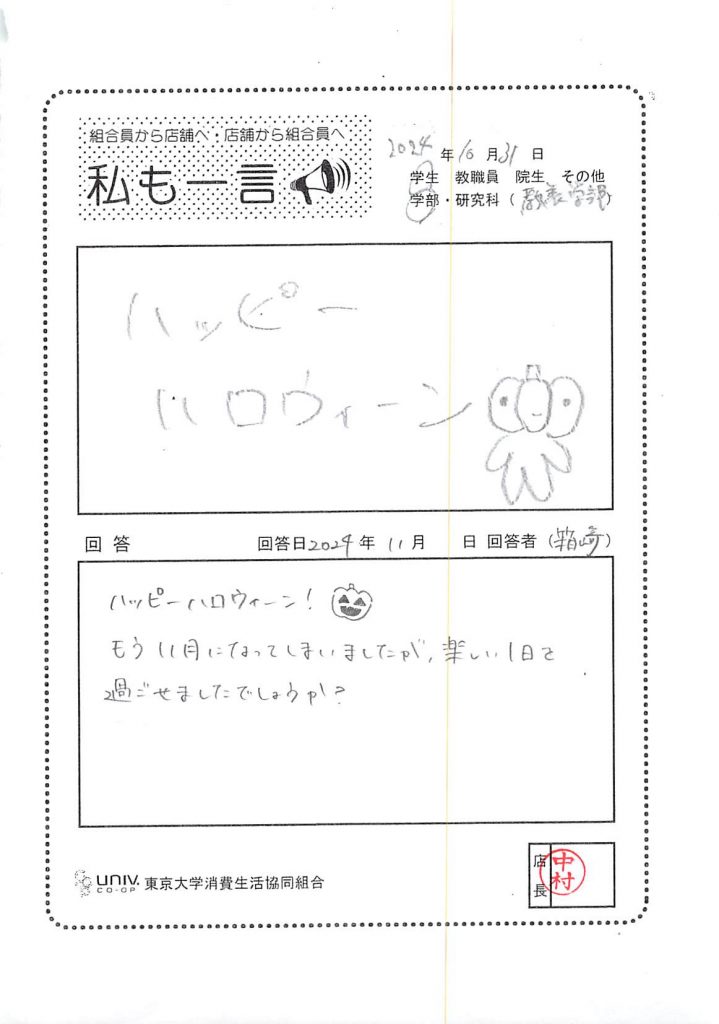 組合員から店舗へ・店舗から組合員へ
私も一言
2024年10月31日
学生 教職員 院生 その他
学部・研究科（教養学部）
ハッピー
ハロウィーン
回答 回答日2024年11月 日 回答者（箱崎）
ハッピーハロウィーン!
もう11月になってしまいましたが、楽しい1日を
過ごせましたでしょうか?
UNIV. CO-OP 東京大学消費生活協同組合
店長
中村